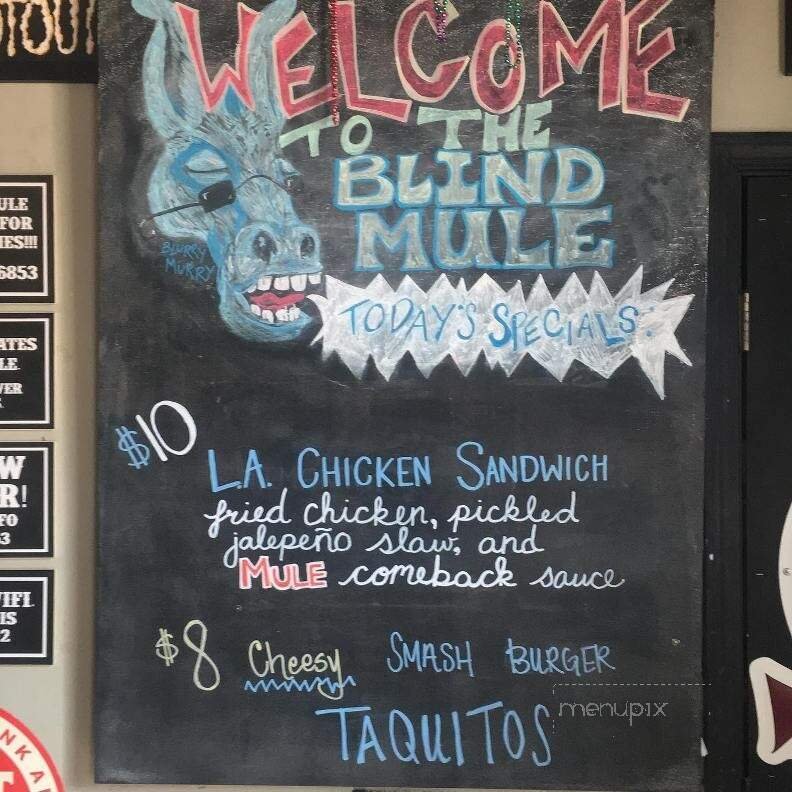 WELCOME
TO THE
BLIND
MULE
BLURRY
MURRY!
TODAY'S SPECIALS:
$10
L.A. CHICKEN SANDWICH
fried chicken, pickled
jalepeño slaw, and
MULE comeback sauce
$8 Cheesy SMASH BURGER
TAQUITOS
menupix
ULE
FOR
IES!!!
6853
ATES
LE.
VER
W
R!
FO
3
IFI
IS
2
NK A